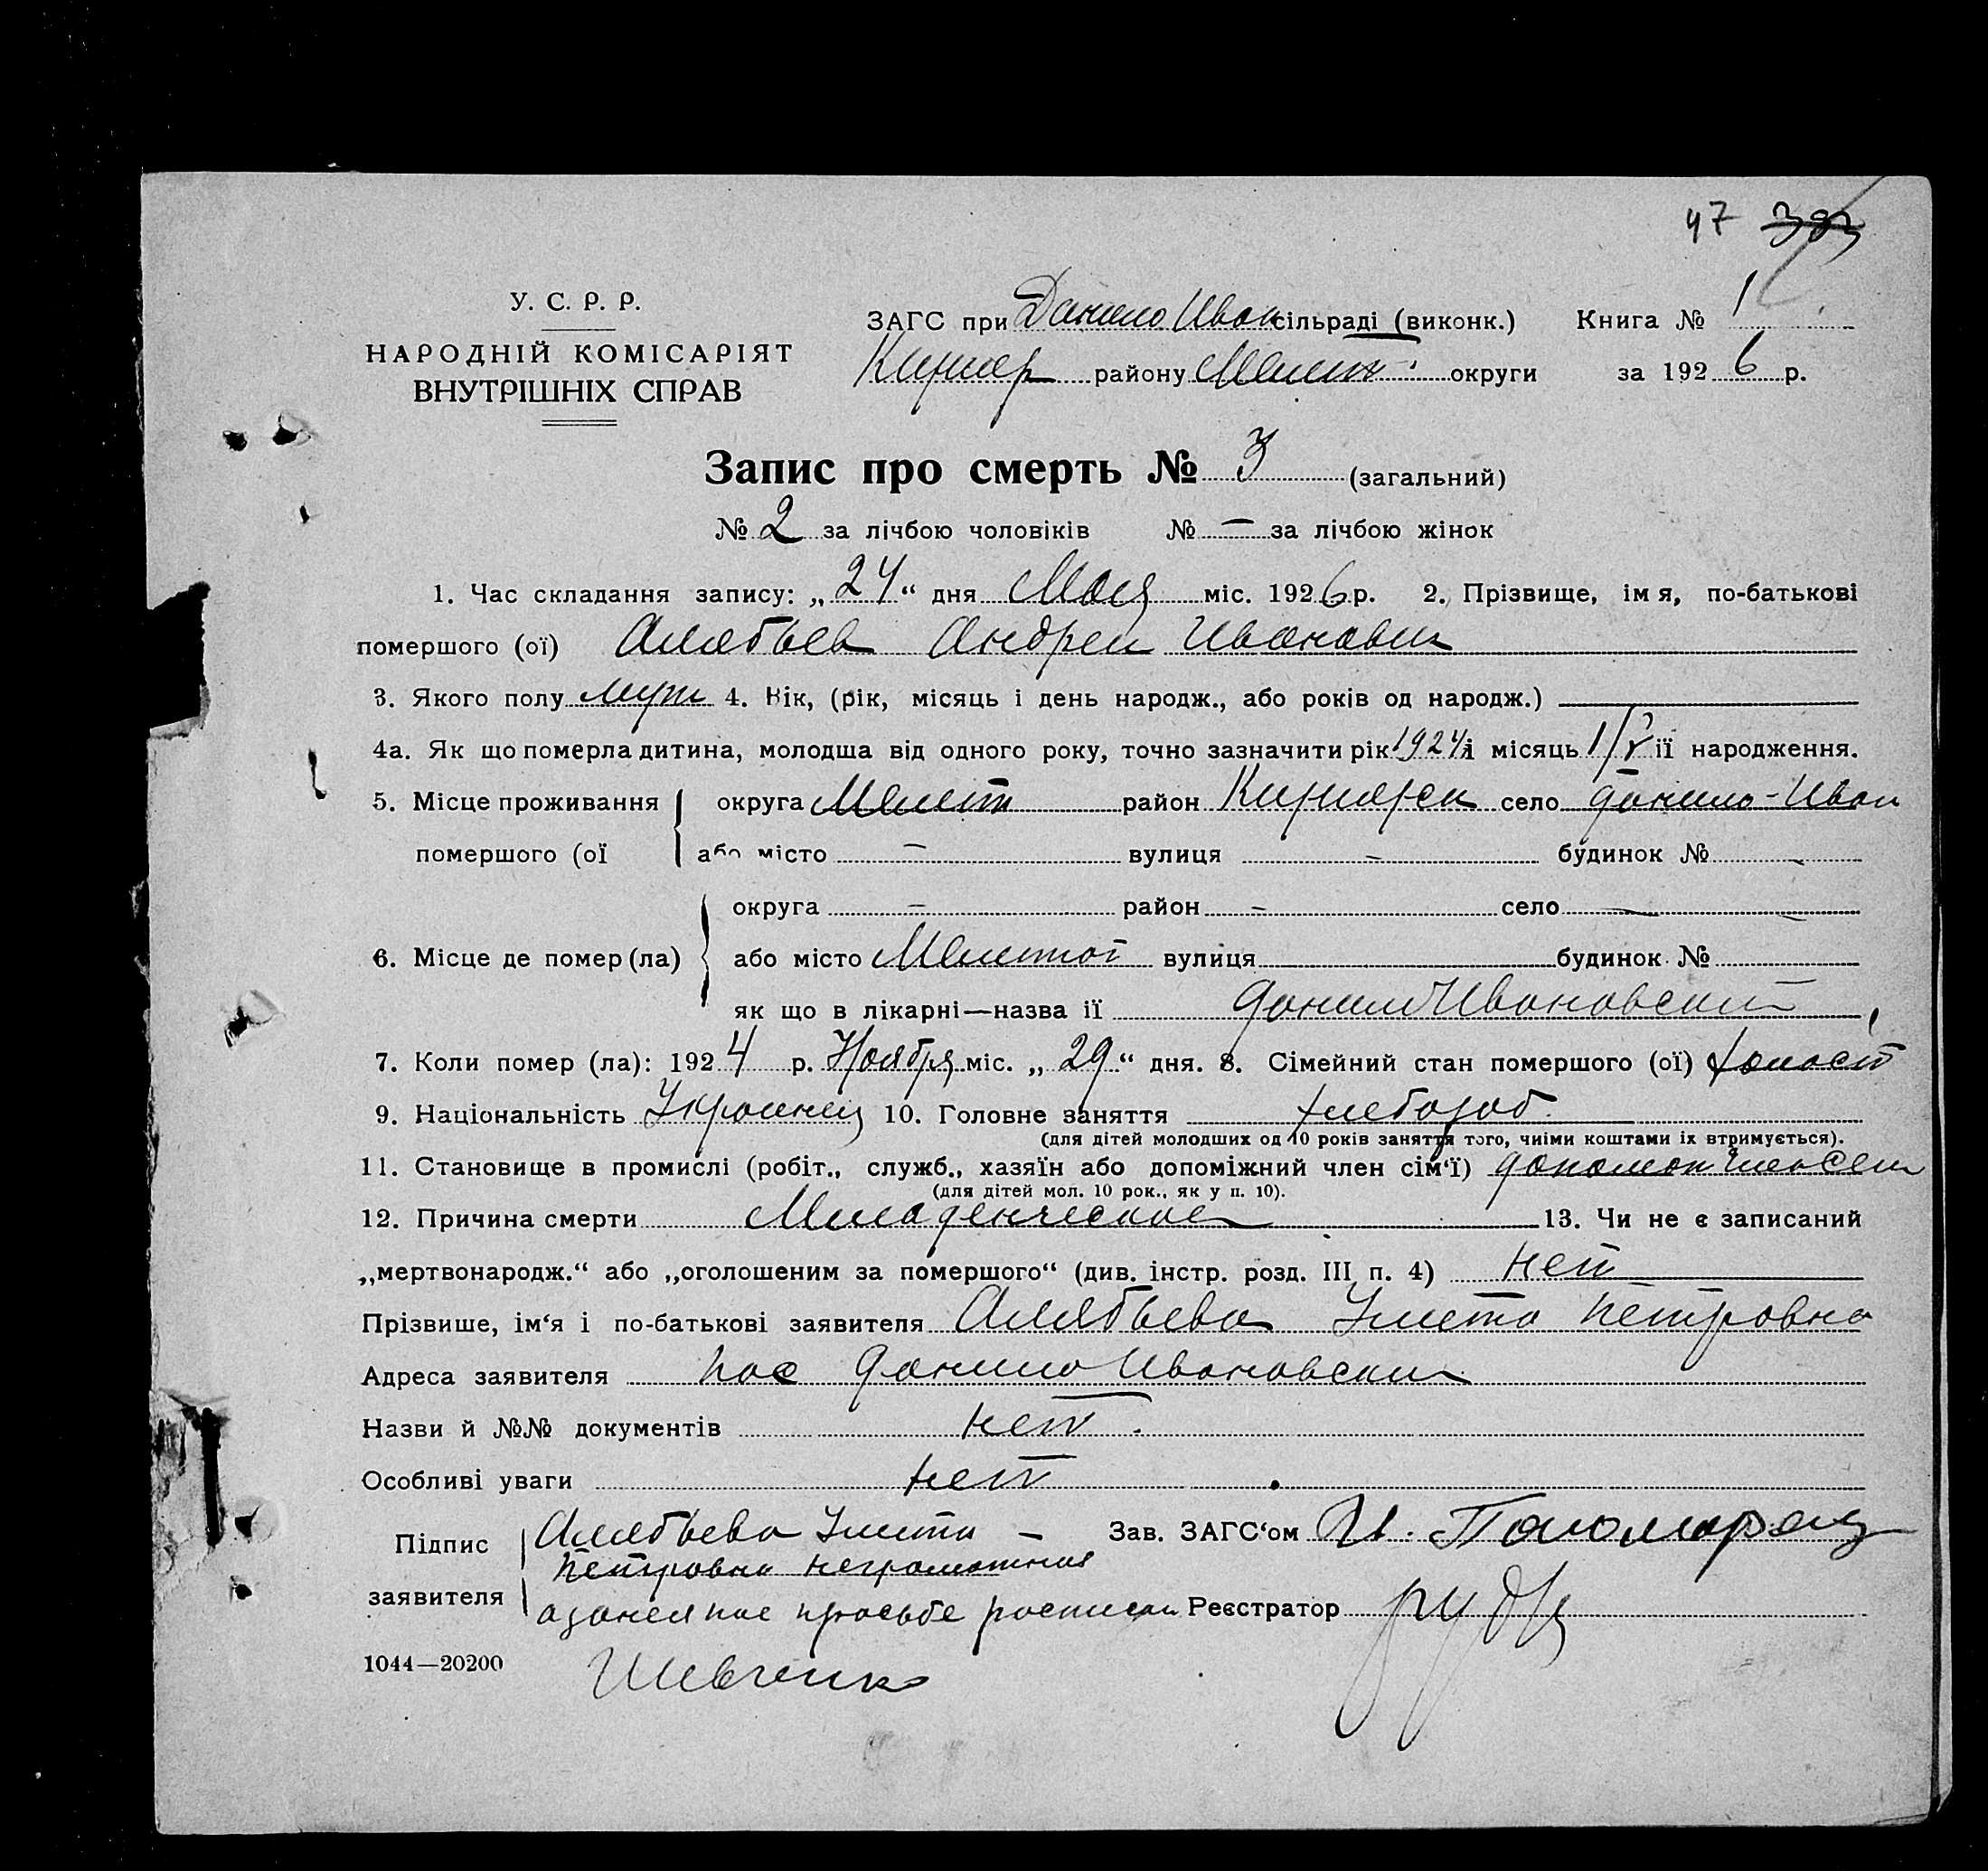 47 383
У. С. Р. Р.
НАРОДНІЙ КОМІСАРІЯТ
ВНУТРІШНІХ СПРАВ
ЗАГС при Данило Иван сільраді (виконк.) Книга № 1
Кизияр району Мелит. округи за 1926 р.
Запис про смерть № 3 (загальний)
№ 2 за лічбою чоловіків № — за лічбою жінок
1. Час складання запису: „24“ дня Мая міс. 1926 р. 2. Прізвище, імя, по-батькові
помершого (ої) Алябьев Андрей Иванович
3. Якого полу муж 4. Вік, (рік, місяць і день народж., або років од народж.)
4а. Як що померла дитина, молодша від одного року, точно зазначити рік 1924 і місяць 1/V її народження.
5. Місце проживання округа Мелит район Кизиярск село Данило-Иван
помершого (ої або місто — вулиця — будинок № -
округа — район — село —
6. Місце де помер (ла) або місто Мелитоп вулиця будинок №
як що в лікарні—назва ії Данило Ивановский
7. Коли помер (ла): 1924 р. Ноября міс. „29“ дня. 8. Сімейний стан помершого (ої) холост
9. Національність Украинец 10. Головне заняття хлебороб.
(для дітей молодших од 10 років заняття того, чиїми коштами їх втримується).
11. Становище в промислі (робіт., служб., хазяїн або допоміжний член сім‘ї) допомож член сем
(для дітей мол. 10 рок., як у п. 10).
12. Причина смерти Младенческая 13. Чи не є записаний
„мертвонародж.“ або „оголошеним за помершого“ (див. інстр. розд. III п. 4) нет
Прізвише, ім‘я і по-батькові заявителя Алябьева Улита Петровна
Адреса заявителя пос Данило Ивановский
Назви й №№ документів нет.
Особливі уваги нет
Підпис Алябьева Улита — Зав. ЗАГС‘ом И. Пономарец
Петровна неграмотная
заявителя а за нея по просьбе росписал Реєстратор
1044—20200 Шевченко